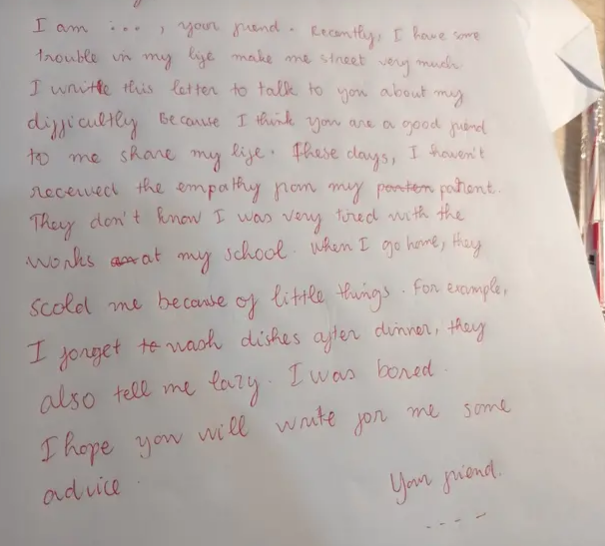 I am ..., your friend. Recently, I have some
trouble in my life make me street very much
I write this letter to talk to you about my
difficultly Because I think you are a good friend
to me share my life. These days, I haven't
received the empathy from my patient.
They don't know I was very tired with the
works at my school. When I go home, they
scold me because of little things. For example,
I forget to wash dishes after dinner, they
also tell me lazy. I was bored.
I hope you will write for me some
advice.
Your friend.
----